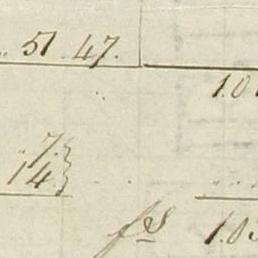 51 47.
1.0
.. 7.
14.
fs 1.03